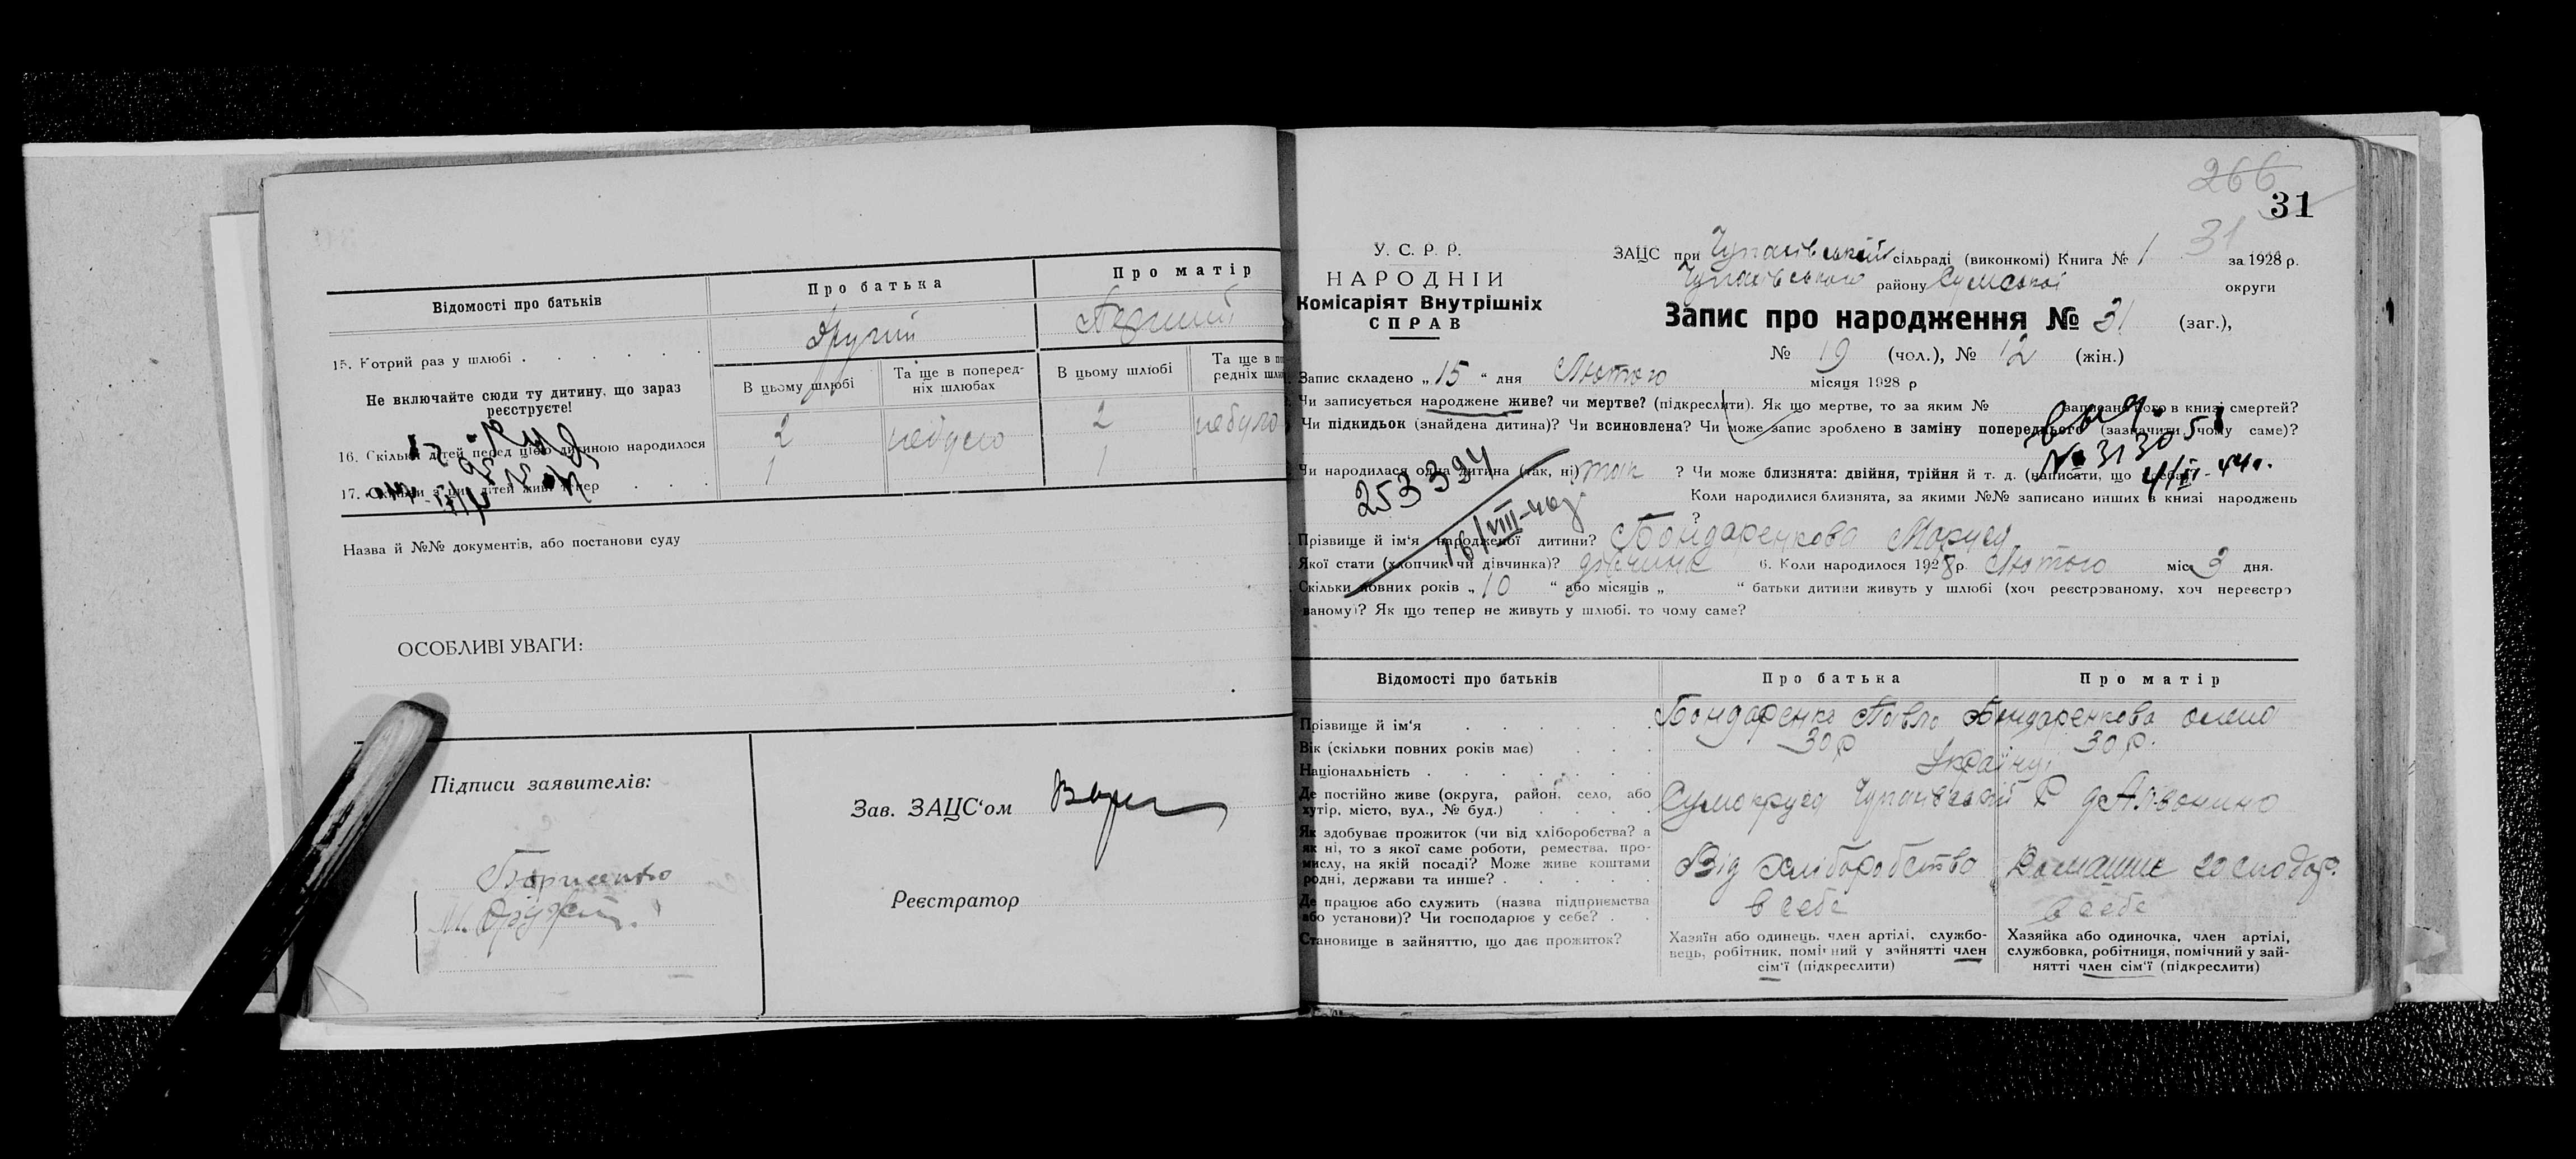 Відомості про батьків
Про батька
Про матір
15. Котрий раз у шлюбі
другий
Первий
Не включайте сюди ту дитину, що зараз
реєструєте!
В цьому шлюбі
Та ще в поперед-
ніх шлюбах
В цьому шлюбі
Та ще в по
редніх шлю
16. Скільки дітей перед цією дитиною народилося
2
небуло
2
небуло
17. Скільки з цих дітей живі тепер
1
1
Назва й №№ документів, або постанови суду
ОСОБЛИВІ УВАГИ:
Підписи заявителів:
Зав. ЗАЦС'ом
Реєстратор
266
31
У. С. Р. Р.
НАРОДНІЙ
Комісаріят Внутрішніх
СПРАВ
ЗАЦС при Чупахівській сільраді (виконкомі) Книга № 1 31 за 1928 р.
Чупахівського району Сумської округи
Запис про народження № 31 (заг.),
№ 19 (чол.), № 12 (жін.)
Запис складено „15“ дня Лютого місяця 1928 р
Чи записується народжене живе? чи мертве? (підкреслити). Як що мертве, то за яким № записано його в книзі смертей?
Чи підкидьок (знайдена дитина)? Чи всиновлена? Чи може запис зроблено в заміну попереднього (зазначити, чому саме)?
№ 3130
4/III-44г.
Чи народилася одна дитина (так, ні) так ? Чи може близнята: двійня, трійня й т. д. (написати, що треба)
253394
16/VIII-40г
Коли народилися близнята, за якими №№ записано инших в книзі народжень
?
Прізвище й ім'я народженої дитини? Бондаренкова Маруся
Якої стати (хлопчик чи дівчинка)? дівчинка 6. Коли народилося 1928 р. Лютого міс 3 дня.
Скільки повних років „10“ або місяців „ “ батьки дитини живуть у шлюбі (хоч реєстрованому, хоч нереєстро
ваному)? Як що тепер не живуть у шлюбі. то чому саме?
Відомості про батьків
Про батька
Про матір
Прізвище й ім'я
Бондаренко Павло
Бондаренкова Олена
Вік (скільки повних років має)
30 р
30 р.
Національність
Українці
Де постійно живе (округа, район, село, або
хутір, місто, вул., № буд.)
Сумокруга Чупахівський Р
Як здобуває прожиток (чи від хліборобства? а
як ні, то з якої саме роботи, ремества, про-
мислу, на якій посаді? Може живе коштами
родні, держави та инше?
Від хліборобства
Домашнє господар.
Де працює або служить (назва підприємства
або установи)? Чи господарює у себе?
в себе
в себе
Становище в зайняттю, що дає прожиток?
Хазяїн або одинець, член артілі, службо-
вець, робітник, помічний у зайнятті член
сім'ї (підкреслити)
Хазяйка або одиночка, член артілі,
службовка, робітниця, помічний у зай-
нятті член сім'ї (підкреслити)